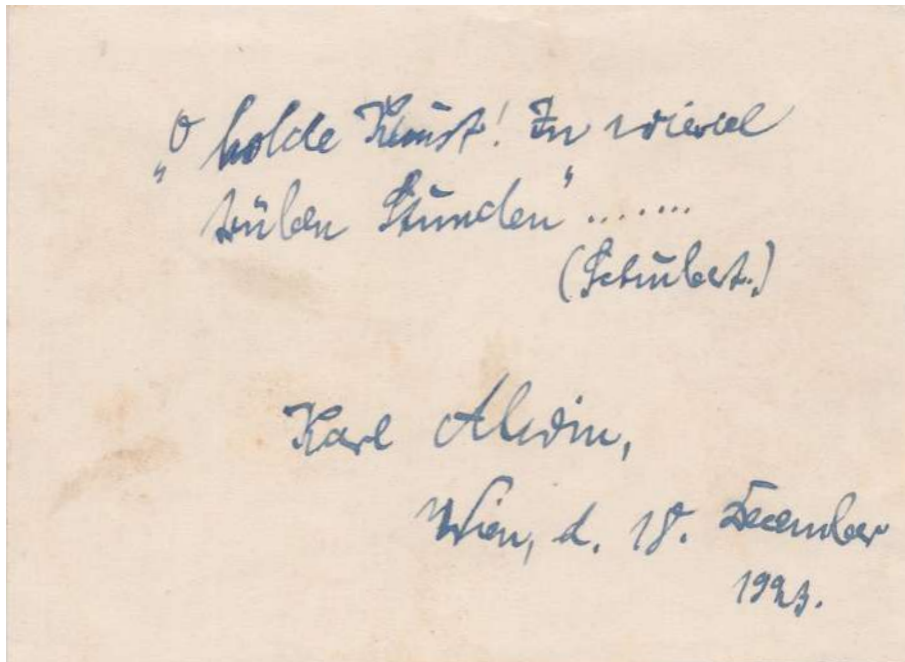 „O holde Kunst! In wieviel
trüben Stunden“.......
(Schubert.)
Karl Alwin,
Wien, d. 18. December
1923.